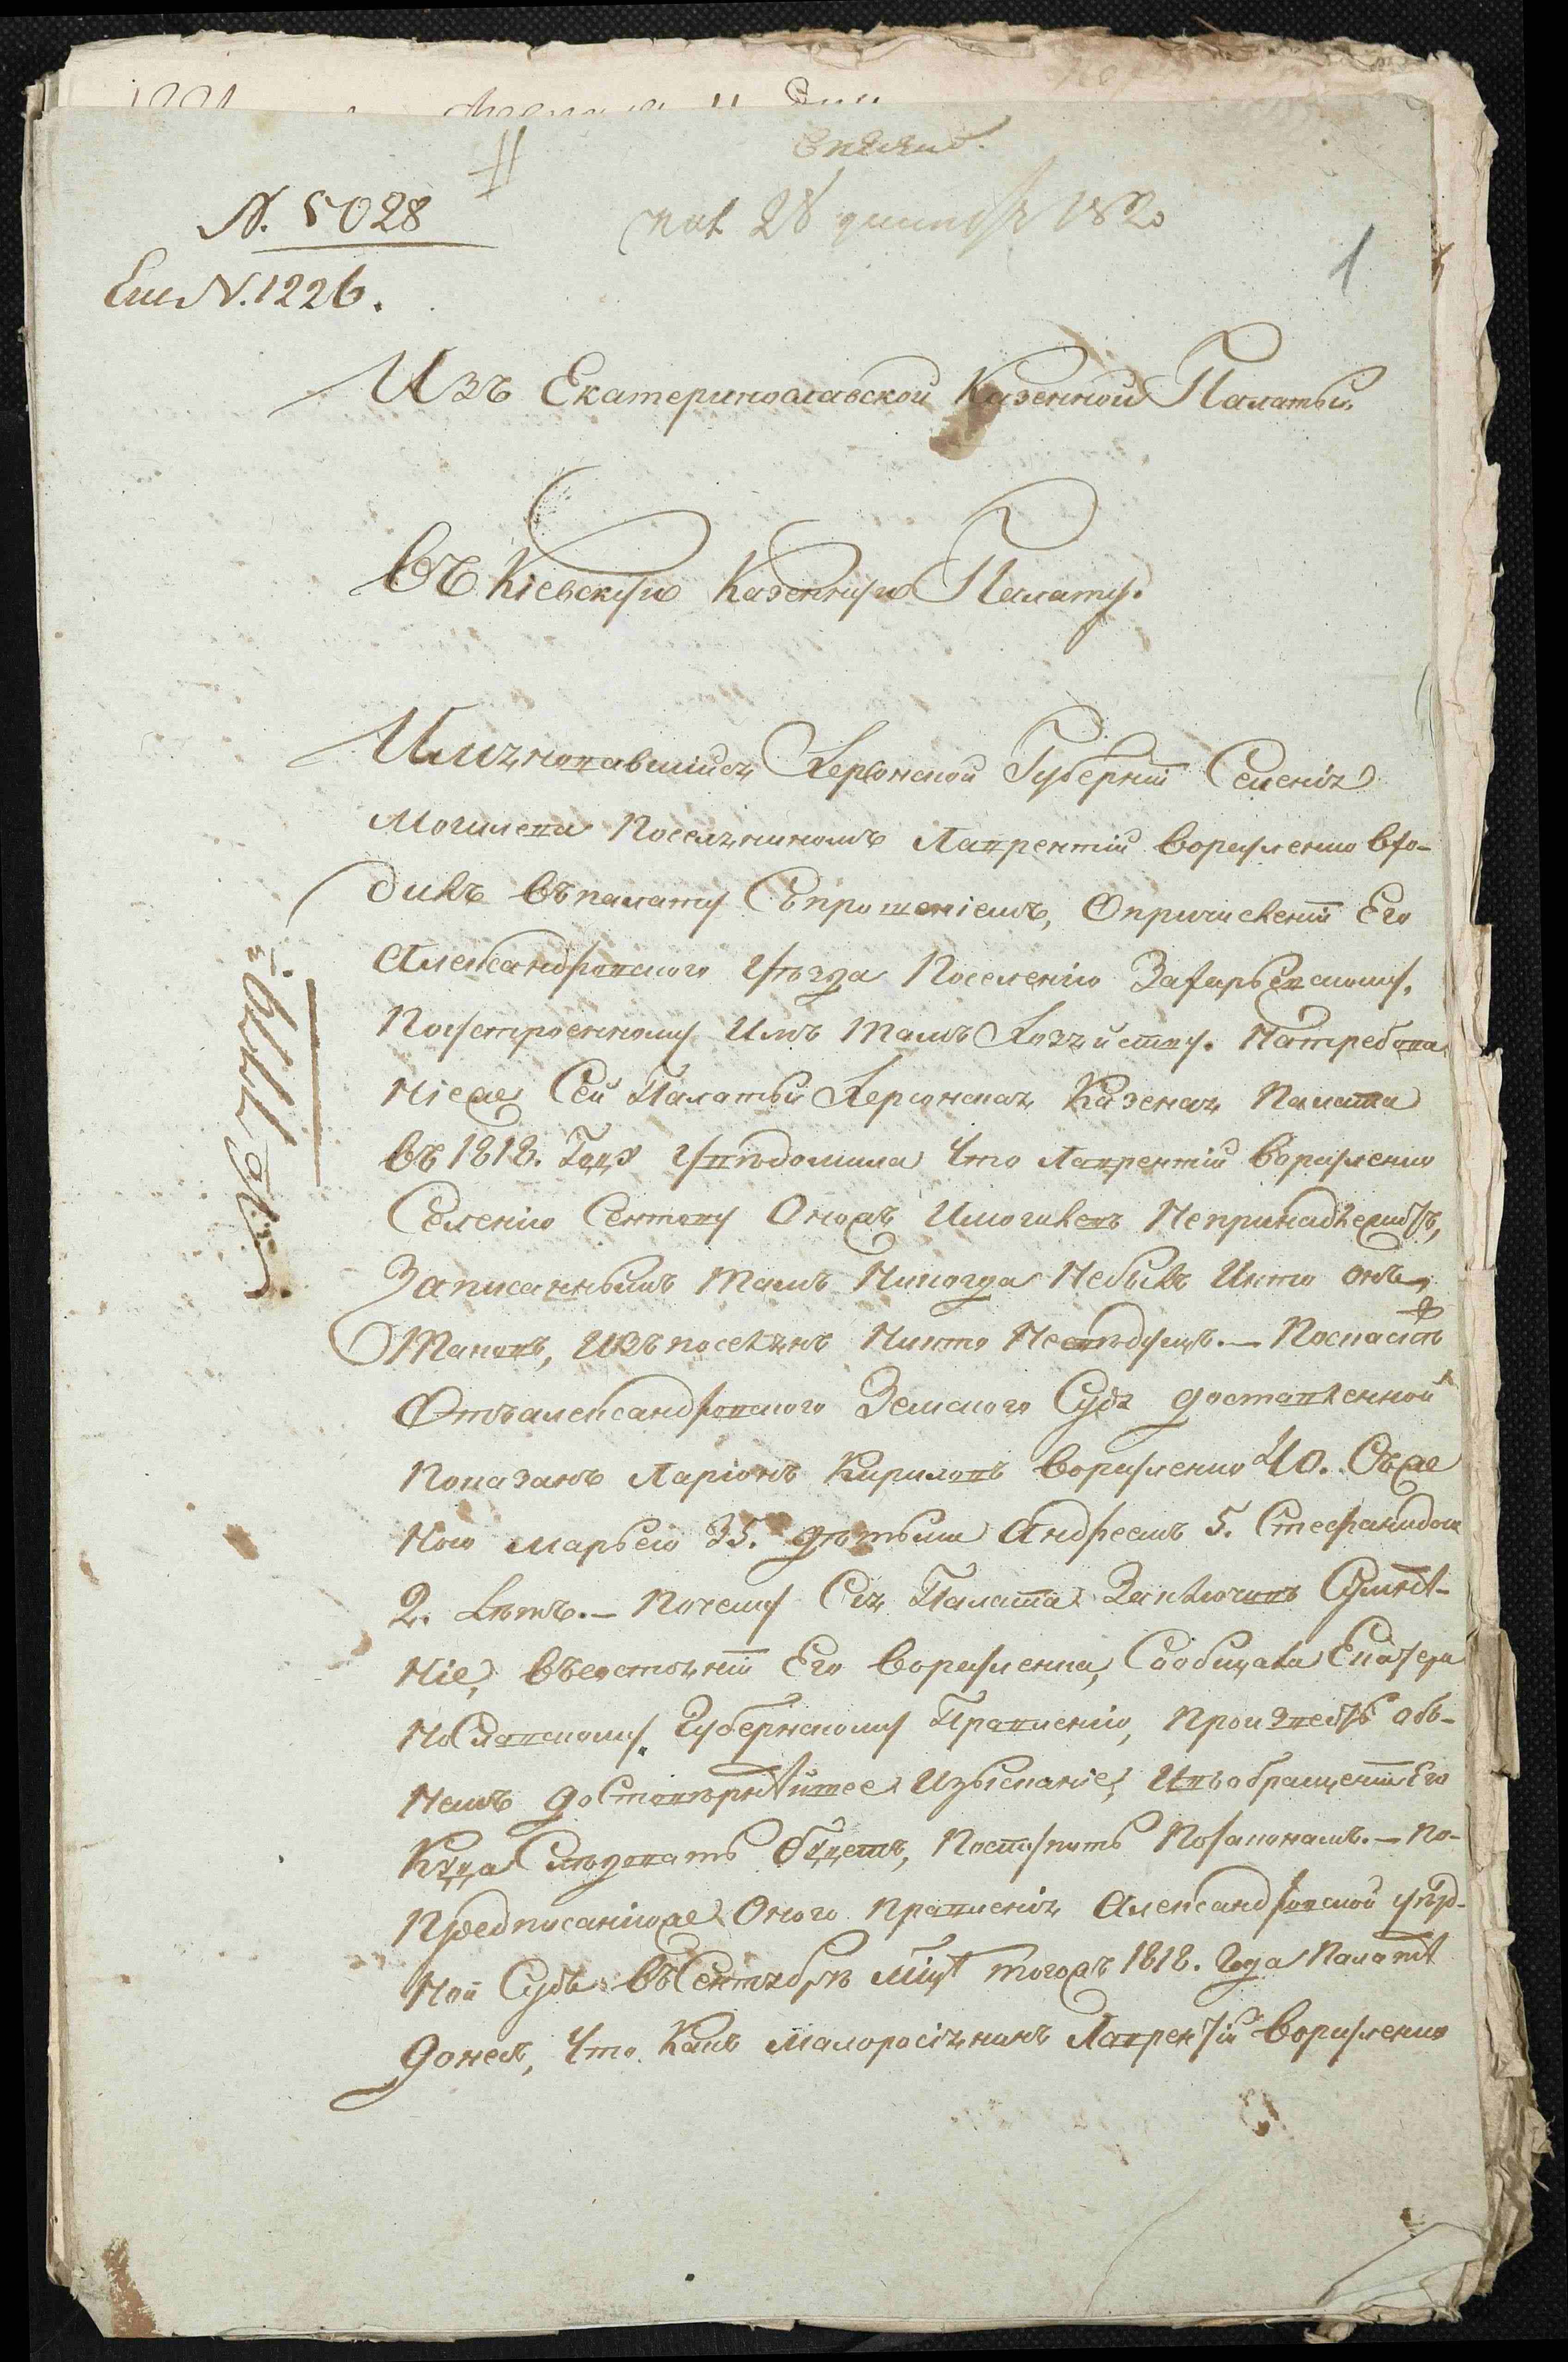 N. 5028
Еще N. 1226.
28 декабря 1820
1
Изъ Екатеринославской Казенной Палаты.
Въ Кіевскую Казенную Палату.
Имяновавшійся Херсонской Губерніи Селенія
Могилева Поселяниномъ Лаврентій Воруленко вхо-
дилъ въ палату Съ прошеніемъ, О причисленіи Его
Александровскаго уѣзда Поселенію Захарьевскому,
По устроенному Имъ тамъ Хозяйству. На требова
ніе же Сей Палаты Херсонская Казеная Палата
въ 1818. Году увѣдомила что Лаврентій Воруленко
Селенію Сентову Онож Имогилевъ Непринадлежитъ,
Записаннымъ тамъ Никогда Небылъ Икто онъ,
Таковъ, Изъ поселянъ Никто Несвѣдущъ. — Поспискѣ
Отъ александровскаго Земскаго Суда доставленной
Показанъ Ларіонъ Кириловъ Воруленко 40. Съ же
ною марьею 35. дѣтьми Андреемъ 5. Стефанидою
2. Лѣтъ. — Почему Сія Палата Заключивъ Сумнѣ-
ніе, въ состояніи Его Воруленка, Сообщала Екатери
нославскому Губернскому Правленію, произвесть объ-
немъ достовѣрнѣйшее Изысканіе, и въ обращеніи Его
Куда Слѣдовать будетъ, Поступить Позаконамъ. — По-
предписанію же Оного правленія Александровской уѣзд-
ной Судъ въ Сентябрѣ мцѣ тогож 1818. Года Палатѣ
донесъ, что Какъ малоросіянинъ Лаврентій Воруленко